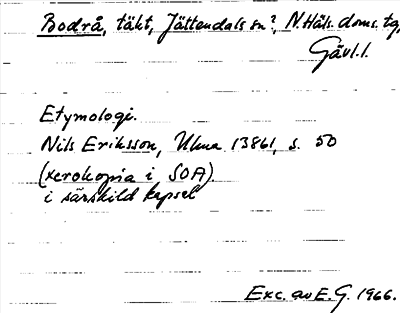 Bodrå, täkt, Jättendals sn?, N. Häls. doms. tg,
Gävl. l.
Etymologi.
Nils Eriksson, Ulma 13861, s. 50
(xerokopia i SOA)
i särskild kapsel
Exc. av E. G. 1966.